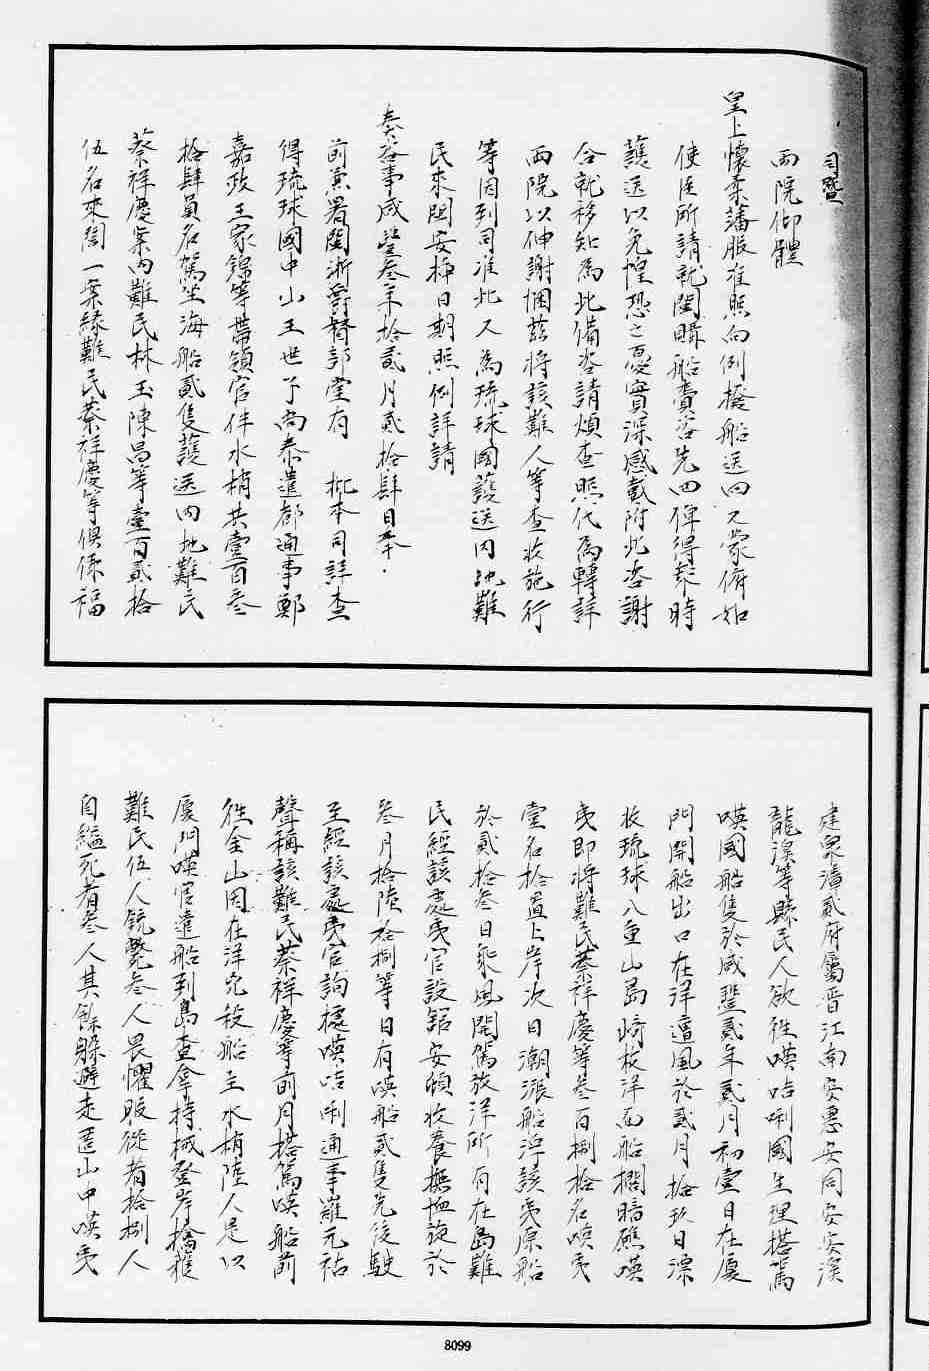 司暨
兩院仰體
皇上懷柔藩服准照向例撥船送回又蒙俯如
使臣所請就閩購船賫咨先回俾得彭時
護送以免惶恐之憂實深感戴附此咨謝
合就移知為此備咨請煩查照代為轉詳
兩院以伸謝悃茲將該難人等查收施行
等因到司准此又為琉球國護送內地難
民來閩安揷日期照例詳請
奏咨事咸豐叁年拾貳月貳拾肆日奉
前兼署閩浙爵督部堂有 批本司詳查
得琉球國中山王世子尚泰遣都通事鄭
嘉政王家錦等帶領官伴水梢共壹百叁
拾肆員名駕坐海船貳隻護送內地難民
蔡祥慶案內難民林玉陳昌等壹百貳拾
伍名來閩一案緣難民蔡祥慶等俱係福
建泉漳貳府屬晋江南安惠安同安安溪
龍溪等縣民人欲往嘆咭唎國生理搭駕
嘆國船隻於咸豐貳年貳月初壹日在廈
門開船出口在洋遭風於貳月拾玖日漂
收琉球八重山島崎枝洋面船擱暗礁嘆
夷即將難民蔡祥慶等叁百捌拾名嘆夷
壹名拾置上岸次日潮漲船浮該夷原船
於貳拾叁日乘風開駕放洋所有在島難
民經該處夷官設館安頓收養撫恤旋於
叁月拾陸拾捌等日有嘆船貳隻先後駛
至經該處夷官詢據嘆咭唎通事羅元祐
聲稱該難民蔡祥慶等前月搭駕嘆船前
往金山因在洋兇殺船主水梢陸人是以
廈門嘆官遣船到島查拿持械登岸擒獲
難民伍人銃斃叁人畏懼服從者拾捌人
自縊死者叁人其餘躲避走匿山中嘆夷
8099